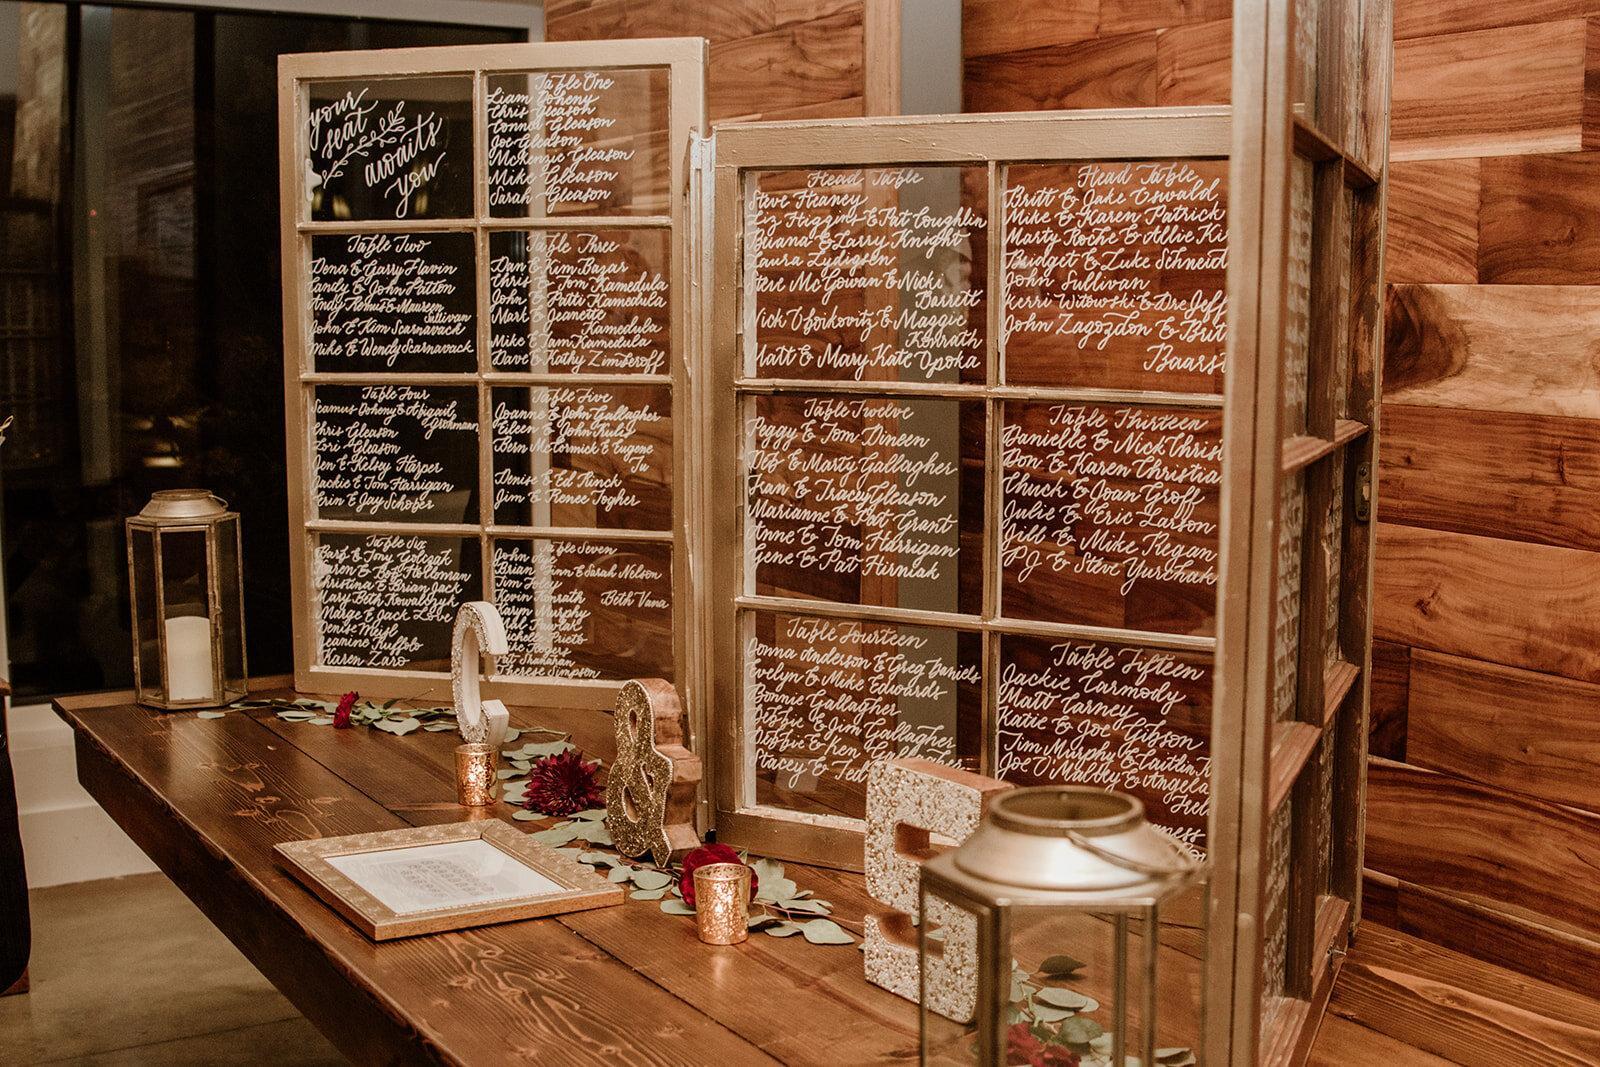 your
seat
awaits
you
Table One
Liam Doheny
Chris Gleason
Connor Gleason
Joe Gleason
McKenzie Gleason
Mike Gleason
Sarah Gleason
Table Two
Dena & Garry Flavin
Candy & John Patton
Andy & Maureen
Sullivan
John & Kim Scarnavack
Mike & Wendy Scarnavack
Table Three
Dan & Kim Bazar
Chris & Tom Kamedula
John & Patti Kamedula
Mark & Jeanette
Kamedula
Mike & Tam Kamedula
Dave & Kathy Zimberoff
Table Four
Seamus Doheny & Abigail
Chris Gleason
Lori Gleason
Jen & Kelsey Harper
Jackie & Tom Harrigan
Erin & Jay Schoper
Table Five
Joanne & John Gallagher
Eileen & John Kulis
Bern McCormick & Eugene
Tu
Denise & Ed Rinck
Jim & Renee Togher
Table Six
Barb & Tony
Karen & Bob Holloman
Christina & Brian Jack
Mary Beth Kowalczyk
Marge & Jack Love
Denise
Jeanine Ruffolo
Karen Zaro
Table Seven
John
Brian Finn & Sarah Nelson
Tim Foley
Kevin Konrath Beth Vana
Karyn Murphy
Michelle Prieto
Mike Rogers
Pat Shanahan
Therese Simpson
Head Table
Steve Heaney
Liz Higgins & Pat Coughlin
Briana & Larry Knight
Laura Lydigsen
Steve McGowan & Nicki
Barrett
Nick & Maggie
Konrath
Matt & Mary Kate Opoka
Head Table
Britt & Jake Oswald
Mike & Karen Patrick
Marty Roche & Allie Ki
Bridget & Luke Schneid
John Sullivan
Kerri Witowski & Dre Jeff
John Zagozdon & Brit
Baarst
Table Twelve
Peggy & Tom Dineen
Deb & Marty Gallagher
Fran & Tracey Gleason
Marianne & Pat Grant
Anne & Tom Harrigan
Gene & Pat Hirniak
Table Thirteen
Danielle & Nick Christ
Don & Karen Christia
Chuck & Joan Groff
Julie & Eric Larson
Jill & Mike Regan
PJ & Steve Yurchak
Table Fourteen
Donna Anderson & Greg Daniels
Evelyn & Mike Edwards
Bonnie Gallagher
Debbie & Jim Gallagher
Debbie & Ken Gallagher
Stacey & Ted
Table Fifteen
Jackie Carmody
Matt Carney
Katie & Joe Gibson
Tim Murphy & Caitlin
Joe O'Malley & Angela
C
&
S